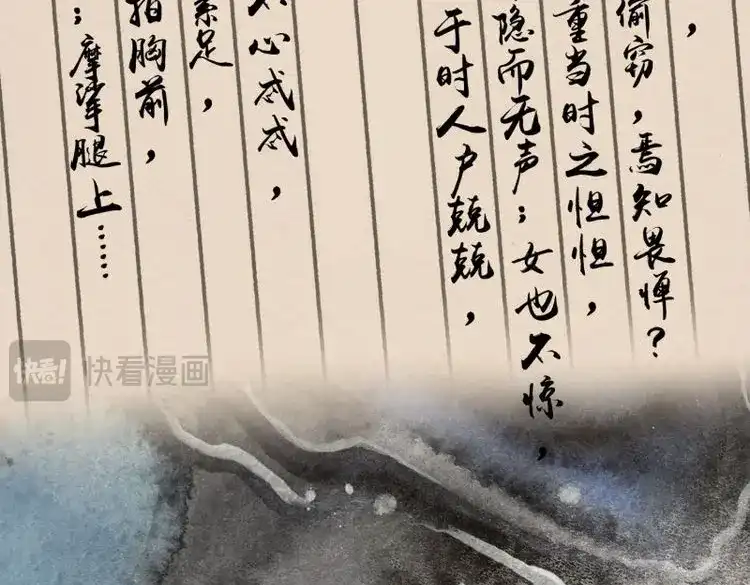 ，
偷窃，焉知畏惮？
重当时之怛怛，
隐而无声；女也不惊，
于时人户兢兢，
心忒忒，
足，
拍胸前，
；摩挲腿上……
快看！
快看漫画